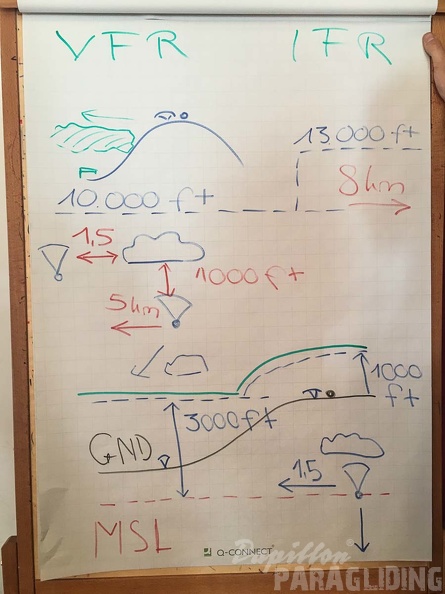 VFR IFR
13.000 ft
10.000 ft 8km
1,5
1000 ft
5km
1000 ft
3000 ft
GND
1,5
MSL
Q-CONNECT
Papillon
PARAGLIDING